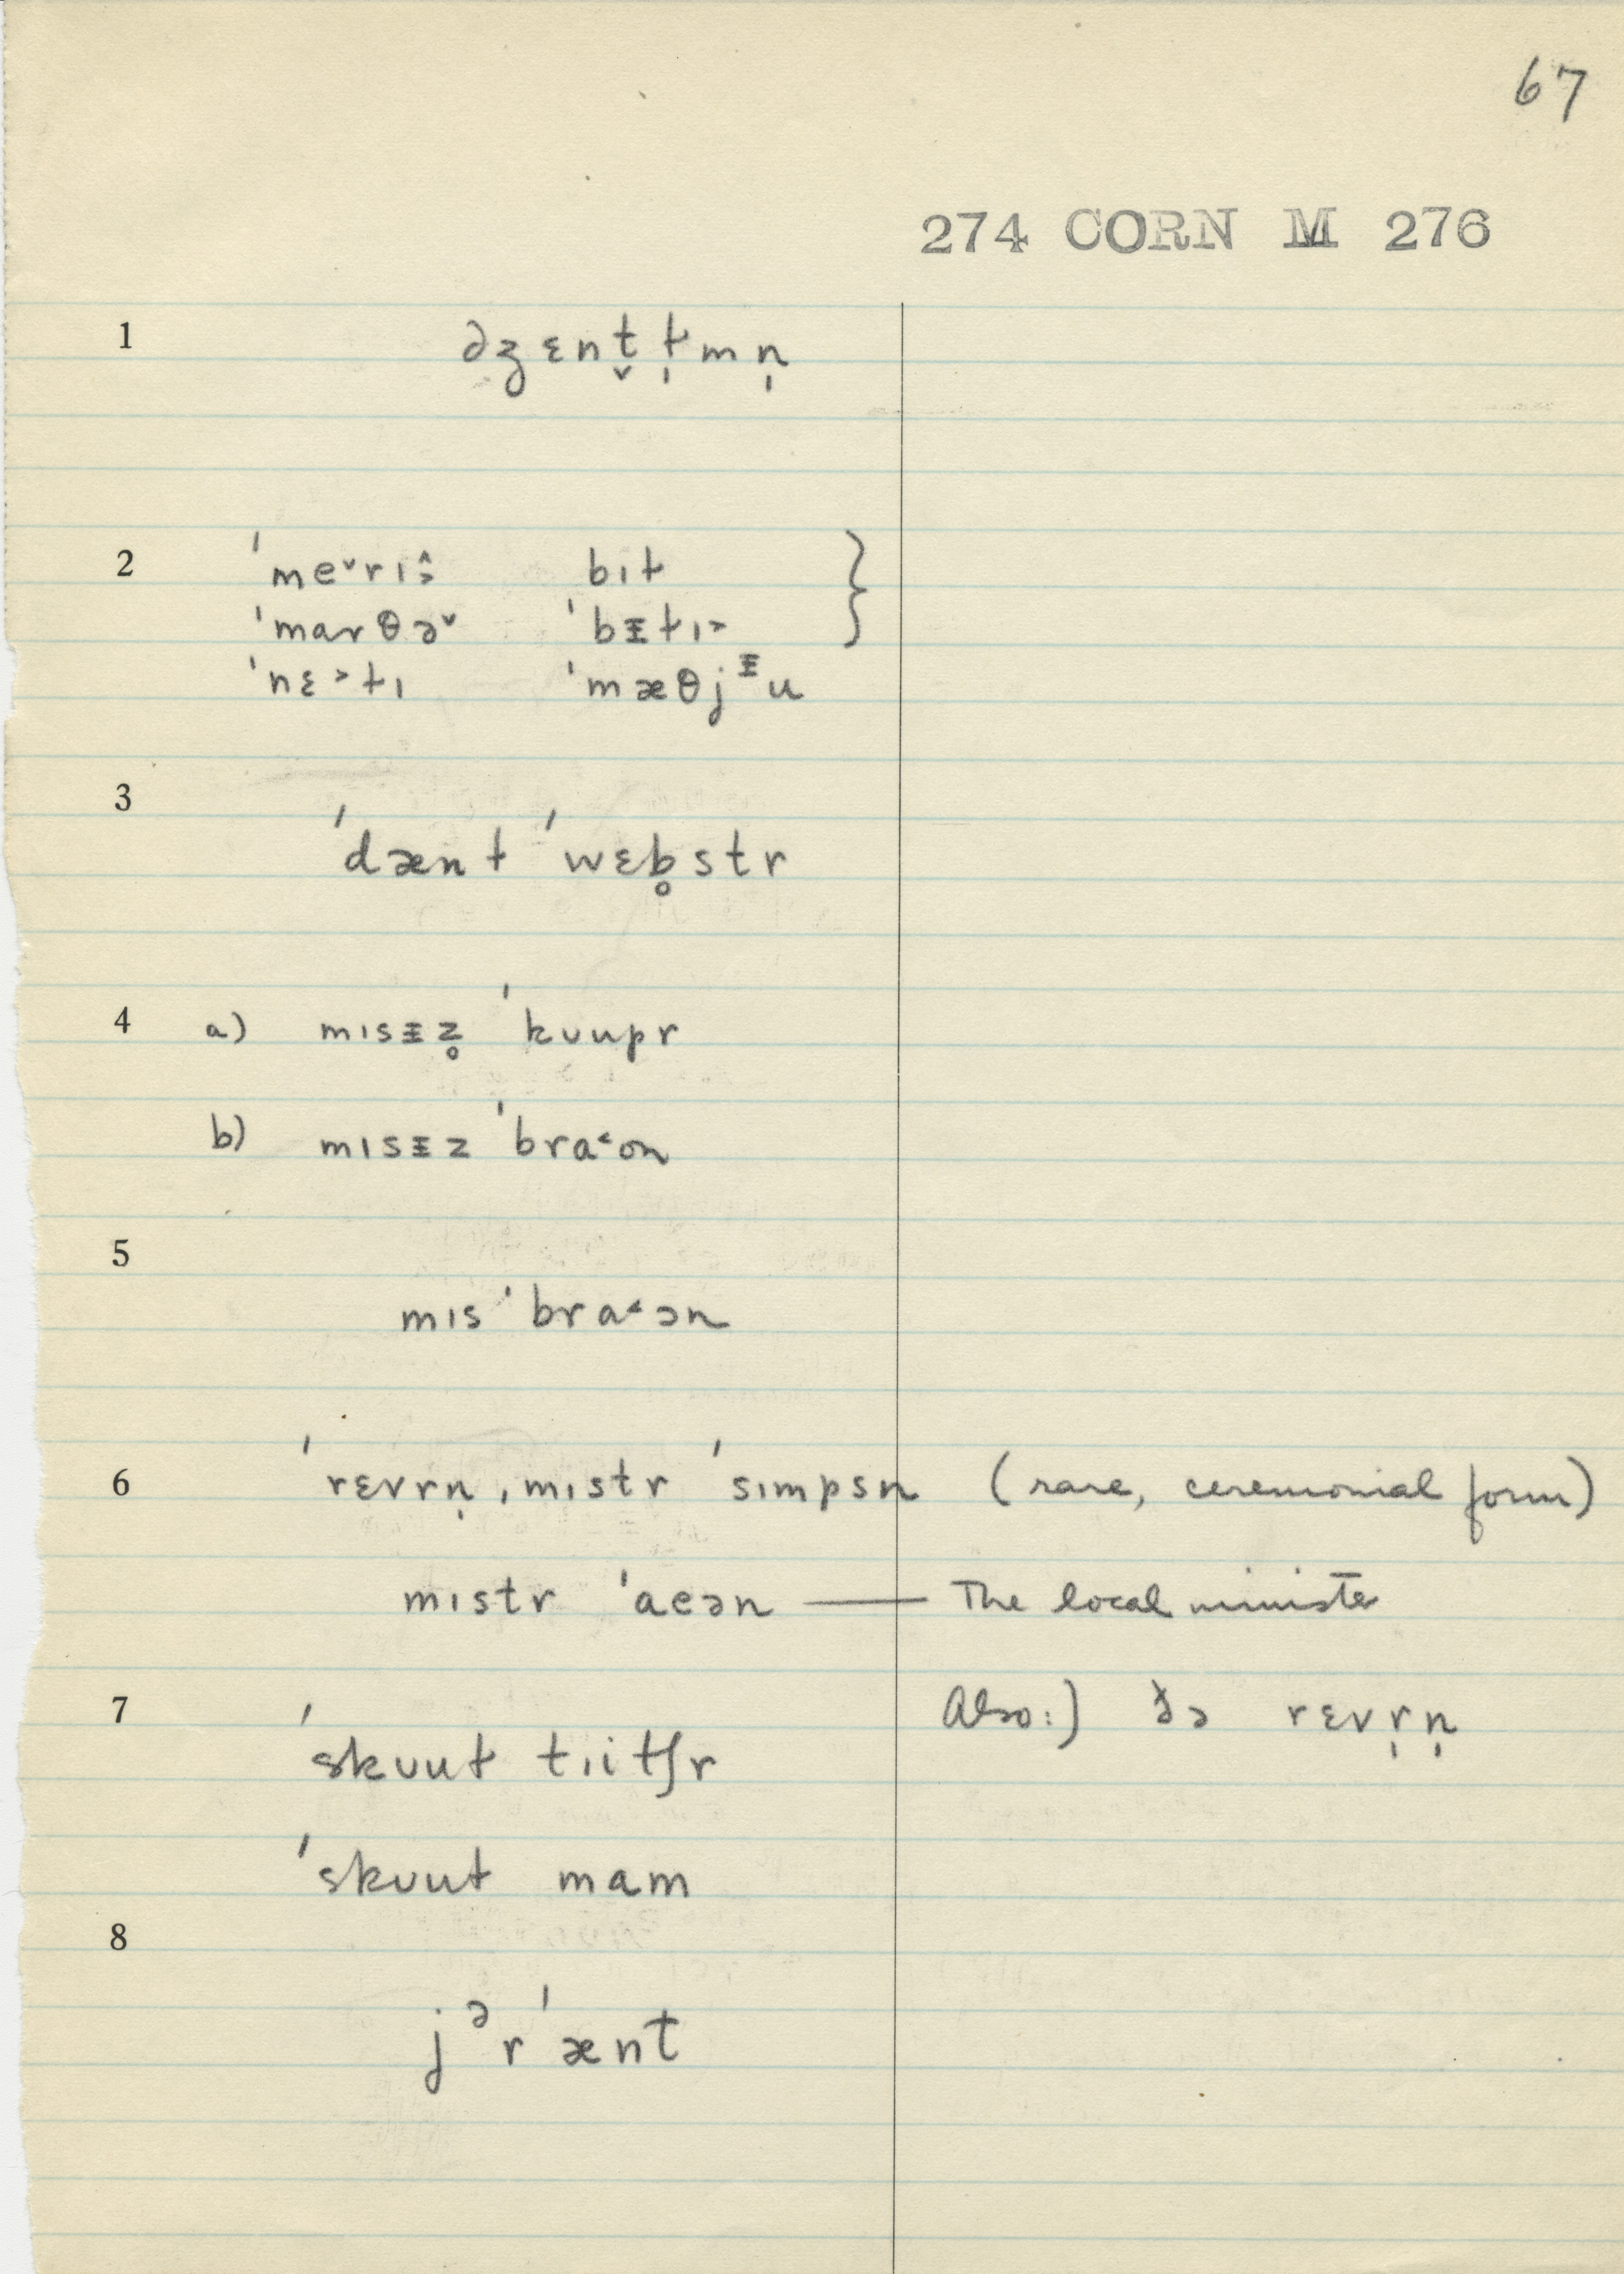 67
274 CORN M 276
1 ə ʒɛnt̬ ɫ̩mn̩
2 ˈmeˇrɪ bɪɫ }
ˈmarθəˇ ˈbᵻɫɪ˃
ˈnɛ˃ɫɪ ˈmæθjᵻu
3 ˈdænɫ ˈwɛb̥str
4 a) mɪsᵻz̥ ˈkʊupr
b) mɪsᵻz ˈbra˂ən
5
mɪs ˈbra˂ən
6 ˈrɛvrn̩ ˌmɪstr ˈsɪmpsn (rare, ceremonial form)
mɪstr ˈaeən — The local minister
7 Also:) ðə rɛvr̩n̩
ˈskʊuɫ tɪitʃr
ˈskʊuɫ mam
8
jᵊrˈænt